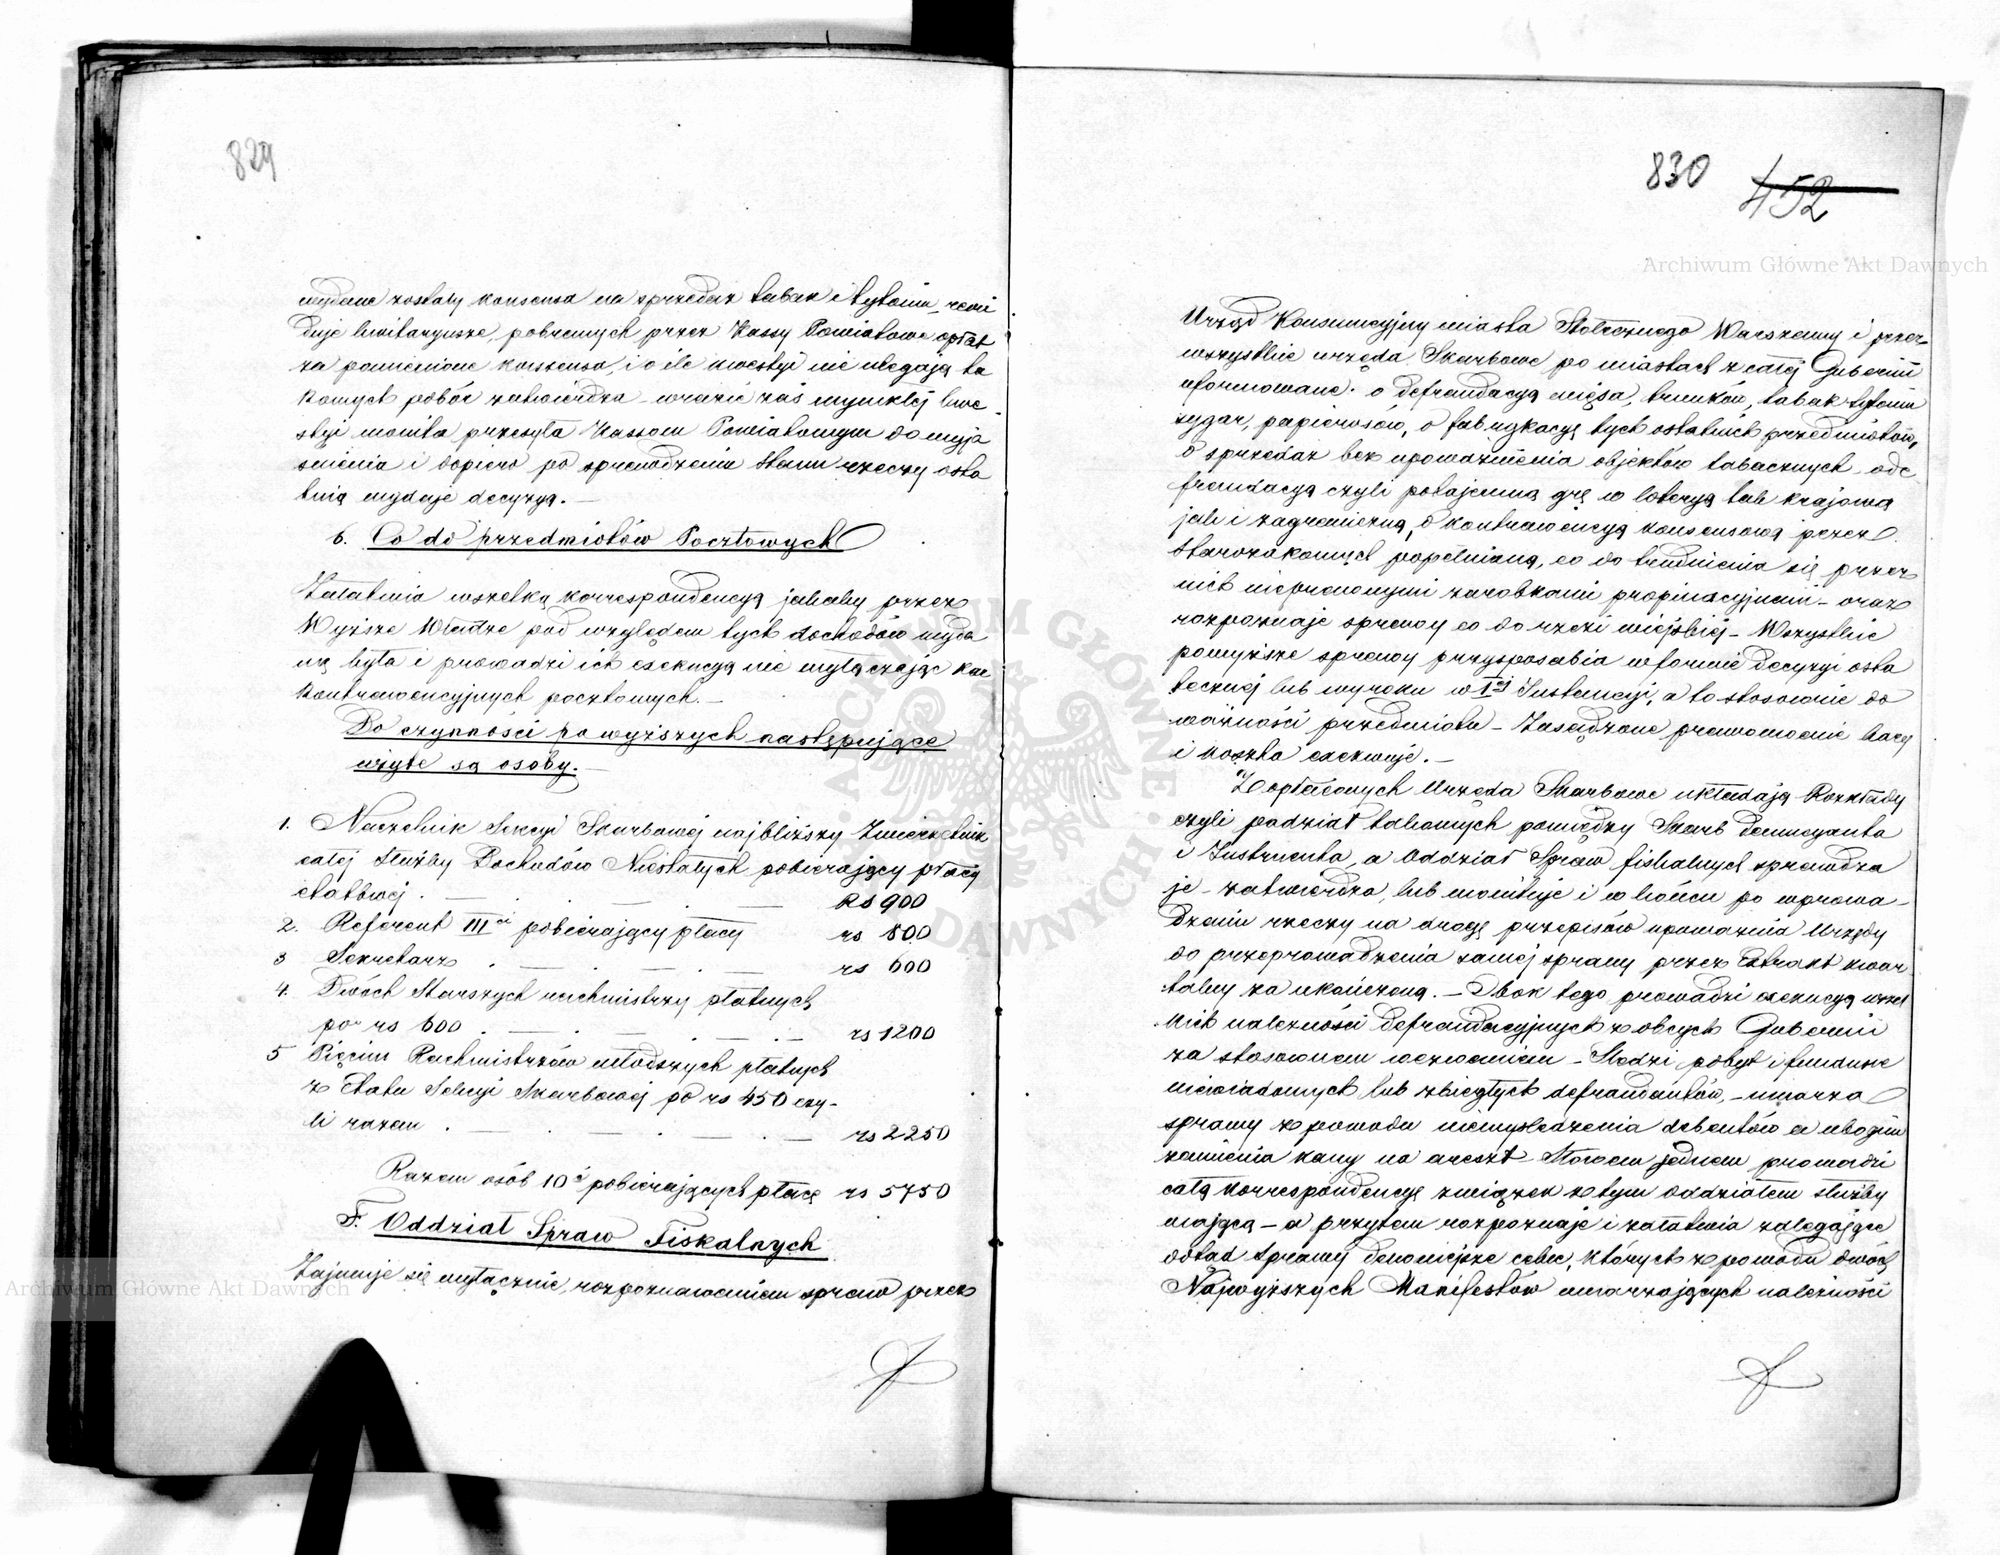 829
wydane zostały konsensa na sprzedaż tabak i tytoniu, rewi
duje kwitaryusze, pobranych przez Kassy Powiatowe opłat
za pomienione konsensa, i o ile kwestyi nie ulegają ta
kowych pobór zatwierdza – w razie zaś wynikłej kwe-
styi monita przesyła Kassom Powiatowym do wyja
śnienia i dopiero po sprawdzeniu stanu rzeczy osta
tnią wydaje decyzyą. –
6. Co do przedmiotów Pocztowych
Załatwia wszelką korrespondencyą jakaby przez
Wyższe Władze pod względem tych dochodów wyda
ną była i prowadzi ich exekucyą nie wyłączając kar
kontrawencyjnych pocztowych. –
Do czynności powyższych następujące
użyte są osoby. –
1. Naczelnik Sekcyi Skarbowej najbliższy Zwierzchnik
całej Służby Dochodów Niestałych pobierający płacy
etatowej . – . – Rs 900
2. Referent III ci pobierający płacy rs 800
3 Sekretarz . – . – . – rs 600
4. Dwóch Starszych rachmistrzy płatnych
po rs 600 . – . – . – rs 1200
5 Pięciu Rachmistrzów młodszych płatnych
z Etatu Sekcyi Skarbowej po rs 450 czy-
li razem . – . – . – rs 2250
Razem osób 10 ć pobierających płacę rs 5750
F. Oddział Spraw Fiskalnych
Zajmuje się wyłącznie, rozpoznawaniem spraw przez
830 452
Urząd Konsumcyjny miasta Stołecznego Warszawy i przez
wszystkie urzęda Skarbowe po miastach z całej Gubernii
uformowane: o defraudacyą mięsa, trunków, tabak tytoniu
cygar, papierosów, o fabrykacyę tych ostatnich przedmiotów,
o sprzedaż bez upoważnienia objektów tabacznych – o de
fraudacyą czyli potajemną grę w loteryą tak krajową
jak i zagraniczną, o kontrawencyą konsensową przez
Starozakonnych popełnianą, co do trudnienia się przez
nich nieprawnymi zarobkami propinacyjnemi – oraz
rozpoznaje sprawy co do rzezi wiejskiej – Wszystkie
powyższe sprawy przysposabia w formie decyzyi osta
tecznej lub wyroku w Iej Instancyi, a to stosownie do
ważności przedmiotu – Zasądzone prawomocnie kary
i koszta exekwuje. –
Z opłaconych Urzęda Skarbowe układają Rozkłady
czyli podział takowych pomiędzy Skarb Denuncyanta
i Instruenta, a Oddział Spraw fiskalnych sprawdza
je – zatwierdza, lub monituje i w końcu po wprowa-
dzeniu rzeczy na drogę przepisów upoważnia Urzędy
do przeprowadzenia samej sprawy przez Extrakt kwar
talny za ukończoną. – Obok tego prowadzi exekucyą wszel
kich należności defraudacyjnych z obcych Gubernii
za stosownem wezwaniem – Śledzi pobyt i fundusze
niewiadomych lub zbiegłych defraudantów, – umarza
sprawy z powodu niewyśledzenia debentów a ubogim
zamienia kary na areszt – Słowem jednem prowadzi
całą korrespondencyę związek z tym Oddziałem służby
mającą – a przytem rozpoznaje i załatwia zalegające
odtąd sprawy dawniejsze celne, których z powodu dwóch
Najwyższych Manifestów umarzających należności
Archiwum Główne Akt Dawnych
Archiwum Główne Akt Dawnych
ARCHIWUM GŁÓWNE AKT DAWNYCH